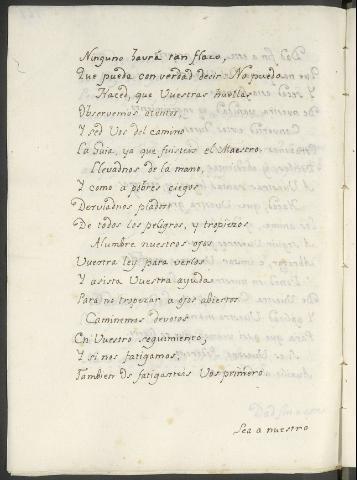 Ninguno havrá tan flaco,
Que pueda con verdad decir: No puedo
Haced, que Vuestras huellas
Observemos atentos,
Y sed Vos del camino
La Guia, ya que fuisteis el Maestro.
Llevadnos de la mano,
Y como a pobres ciegos
Desviadnos piadoso
De todos los peligros, y tropiezos
Alumbre nuestros ojos
Vuestra ley para verlos
Y asista Vuestra ayuda
Para no tropezar a ojos abiertos
Caminemos devotos
En Vuestro seguimiento;
Y si nos fatigamos,
Tambien Os fatigasteis Vos primero.
Sea a nuestro